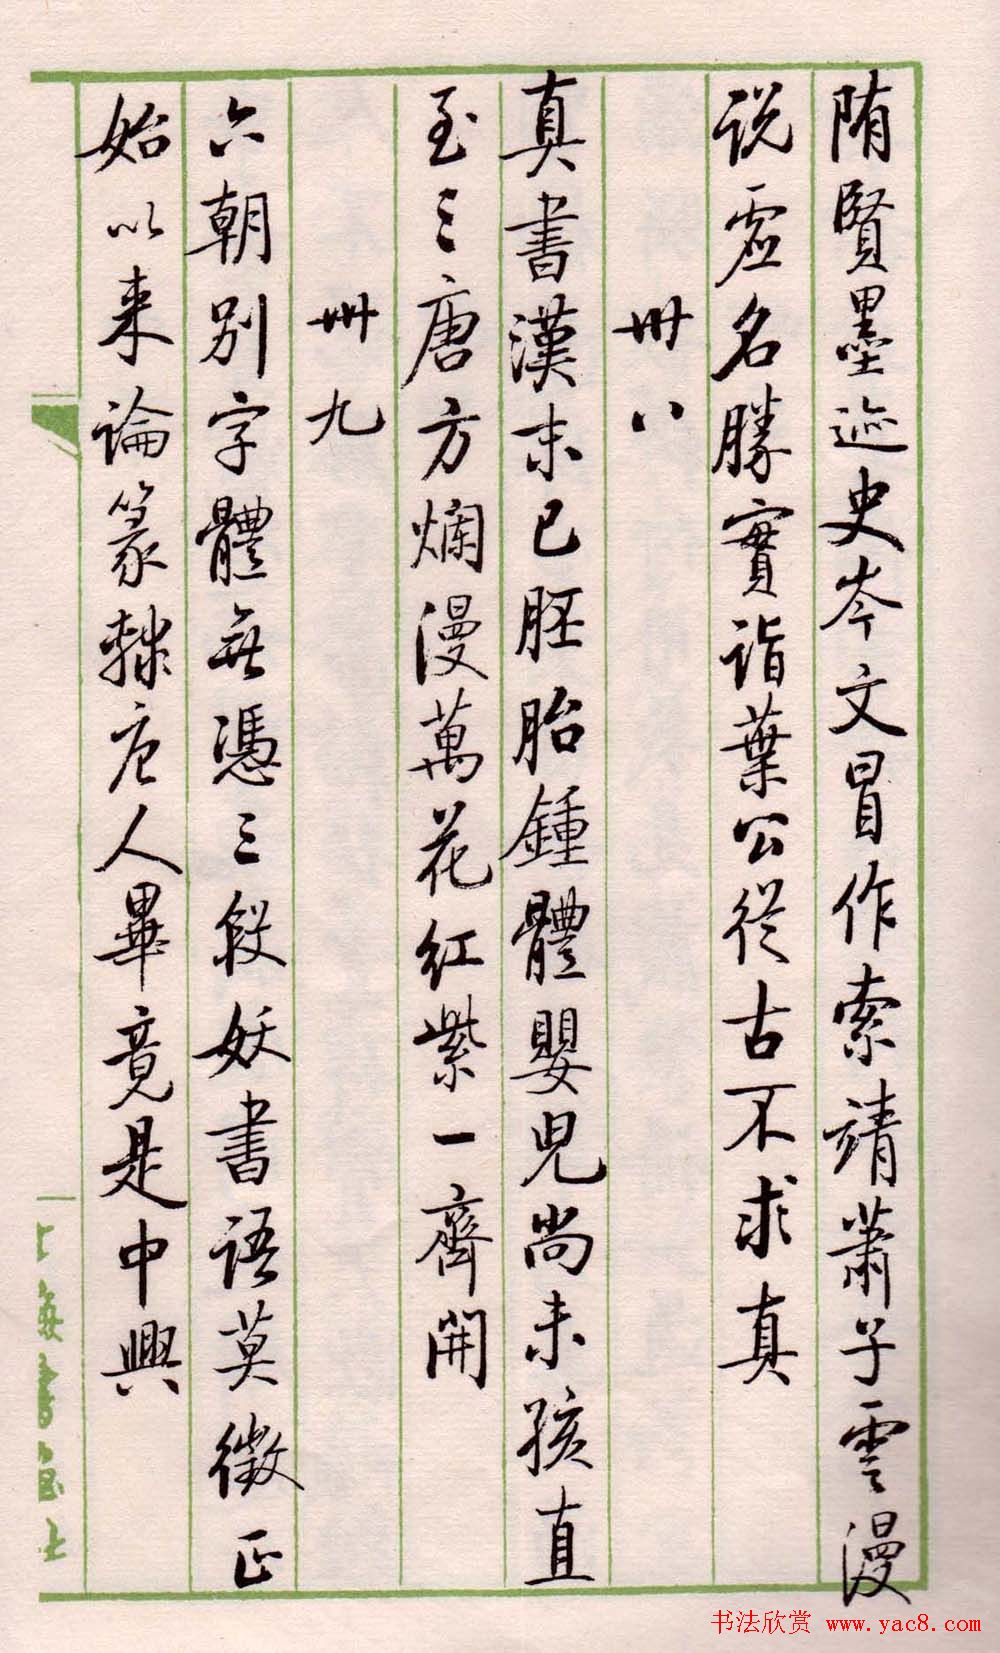 隋賢墨迹史岑文冒作索靖蕭子雲漫
说虚名勝實詣葉公從古不求真
卅八
真書漢末已胚胎鍾體嬰兒尚未孩直
至三唐方爛漫萬花红紫一齊開
卅九
六朝别字體無憑三段妖書語莫徵正
始以来論篆隸唐人畢竟是中興
书法欣赏 www.yac8.com